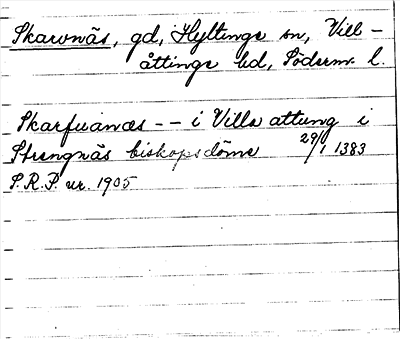 Skarvnäs, gd, Hyltinge sn, Vill-
åttinge hd, Söderm. l.
Skarfuanæs -- i Villa attung i
Strengnäs biskopsdöme 29/1 1383
S.R.P. nr. 1905